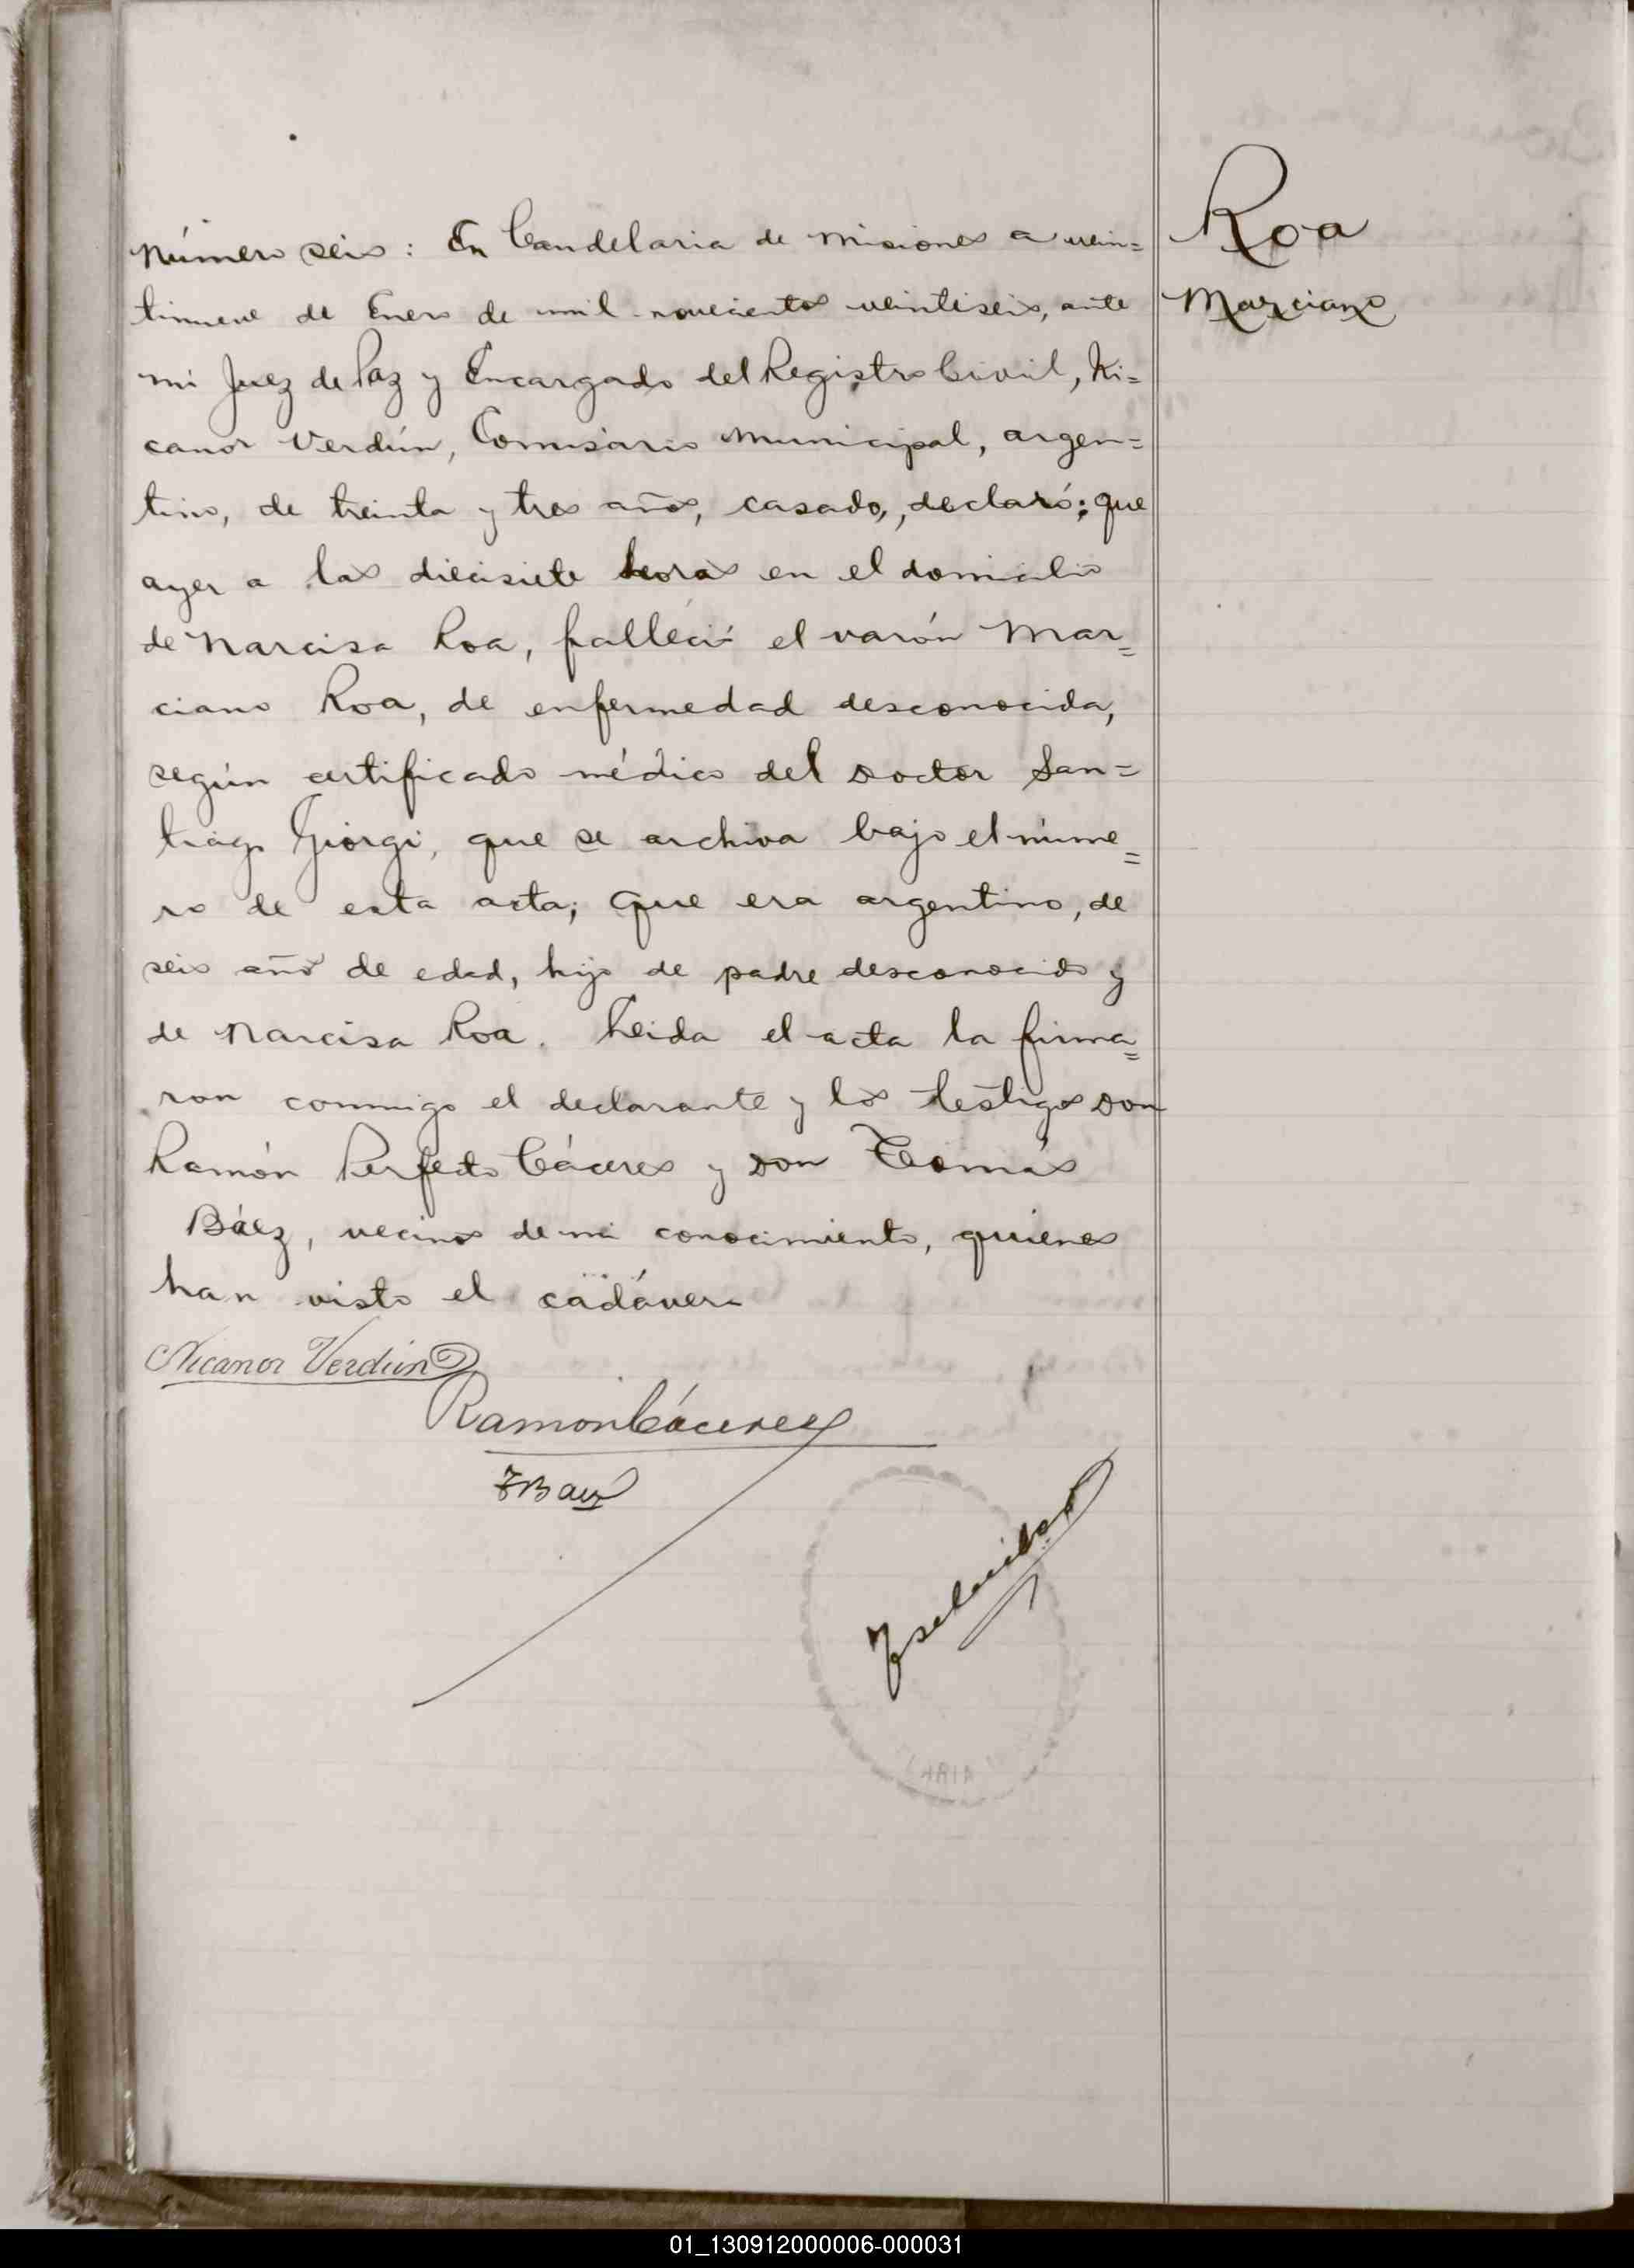 Roa
Marciano
Número seis: En Candelaria de Misiones a vein=
tinueve de Enero de mil novecientos veintiseis, ante
mi Juez de Paz y Encargado del Registro Civil, Ni=
canor Verdún, Comisario Municipal, argen=
tino, de treinta y tres años, casado, declaró: que
ayer a las diecisiete horas en el domicilio
de Narcisa Roa, falleció el varón Mar=
ciano Roa, de enfermedad desconocida,
según certificado médico del Doctor San=
tiago Giorgi, que se archiva bajo el núme=
ro de esta acta; que era argentino, de
seis años de edad, hijo de padre desconocido y
de Narcisa Roa. Leida el acta la firma=
ron conmigo el declarante y los testigos Don
Ramón Perfecto Cáceres y Don Tomás
Báez, vecinos de mi conocimiento, quienes
han visto el cadáver.
Nicanor Verdún
Ramon Cáceres
TBaez
01_130912000006-000031